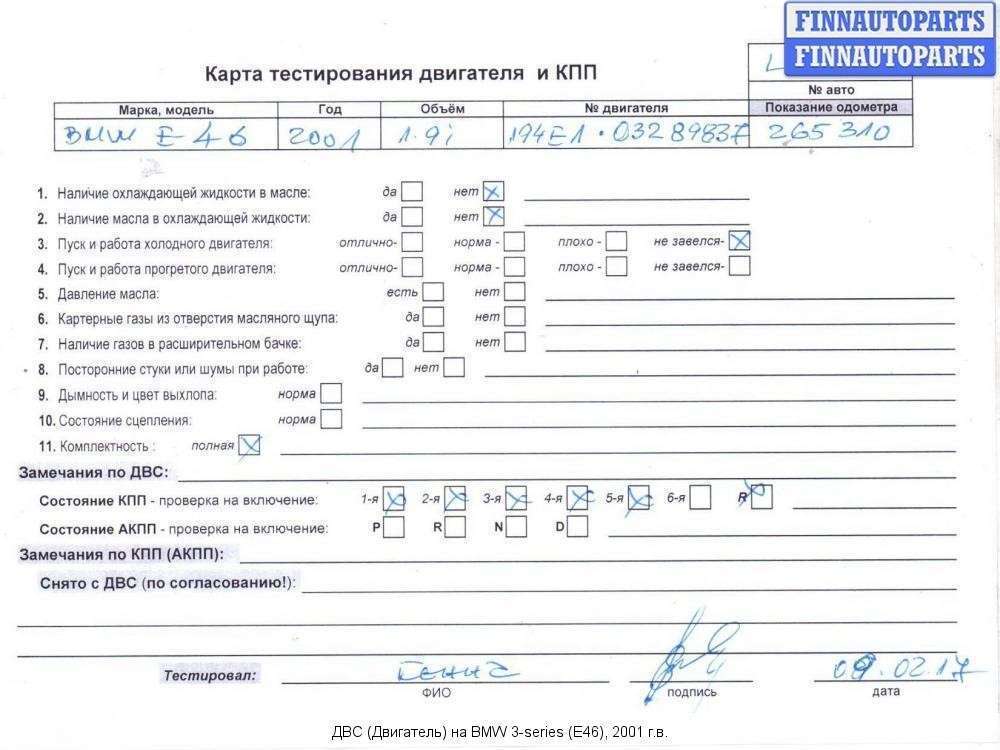 FINNAUTOPARTS
FINNAUTOPARTS
Карта тестирования двигателя и КПП
№ авто
Марка, модель Год Объём № двигателя Показание одометра
BMW E 46 2001 1.9i 194E1 · 03289837 265 310
1. Наличие охлаждающей жидкости в масле: да нет
2. Наличие масла в охлаждающей жидкости: да нет
3. Пуск и работа холодного двигателя: отлично- норма - плохо - не завелся-
4. Пуск и работа прогретого двигателя: отлично- норма - плохо - не завелся-
5. Давление масла: есть нет
6. Картерные газы из отверстия масляного щупа: да нет
7. Наличие газов в расширительном бачке: да нет
8. Посторонние стуки или шумы при работе: да нет
9. Дымность и цвет выхлопа: норма
10. Состояние сцепления: норма
11. Комплектность : полная
Замечания по ДВС:
Состояние КПП - проверка на включение: 1-я 2-я 3-я 4-я 5-я 6-я R
Состояние АКПП - проверка на включение: P R N D
Замечания по КПП (АКПП):
Снято с ДВС (по согласованию!):
Тестировал: 09.02.17
ФИО подпись дата
ДВС (Двигатель) на BMW 3-series (E46), 2001 г.в.